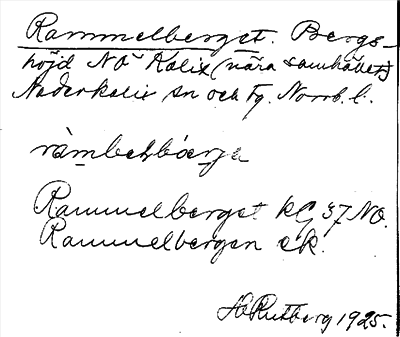 Rammelberget. Bergs-
höjd NO Kalix (nära samhället)
Nederkalix sn och fg. Norrb. l.
Rammelberget kG 37 NO.
Rammelbergen ek.
H Rutberg 1925.